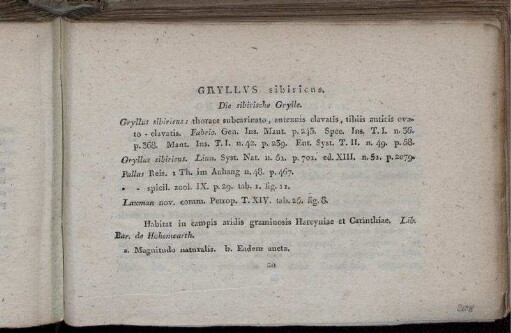 GRYLLVS sibiricus.
Die sibirische Grylle.
Gryllus sibiricus: thorace subcarinato, antennis clavatis, tibiis anticis ova-
to-clavatis. Fabric. Gen. Ins. Mant. p. 243. Spec. Ins. T. I. n. 36.
p. 368. Mant. Ins. T. I. n. 42. p. 239. Ent. Syst. T. II. n. 49. p. 58.
Gryllus sibiricus. Linn. Syst. Nat. n. 52. p. 701. ed. XIII. n. 52. p. 2079.
Pallas Reis. 1 Th. im Anhang n. 48. p. 467.
- - spicil. zool. IX. p. 29. tab. 1. fig. 11.
Laxman nov. comm. Petrop. T. XIV. tab. 25. fig. 8.
Habitat in campis aridis graminosis Hercyniae et Carinthiae. Lib.
Bar. de Hohenwarth.
a. Magnitudo naturalis. b. Eadem aucta.
20